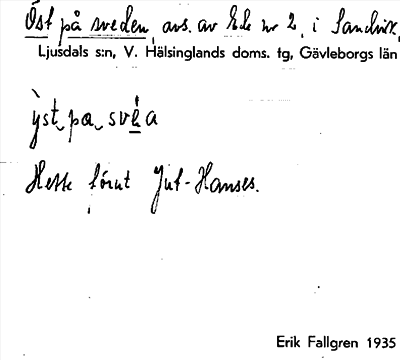 Öst på sveden, avs. av Ede nr 2, i Sandvik,
Ljusdals s:n, V. Hälsinglands doms. tg, Gävleborgs län
ỳst‿pa‿svéa
Hette förut Jut-Hanses.
Erik Fallgren 1935